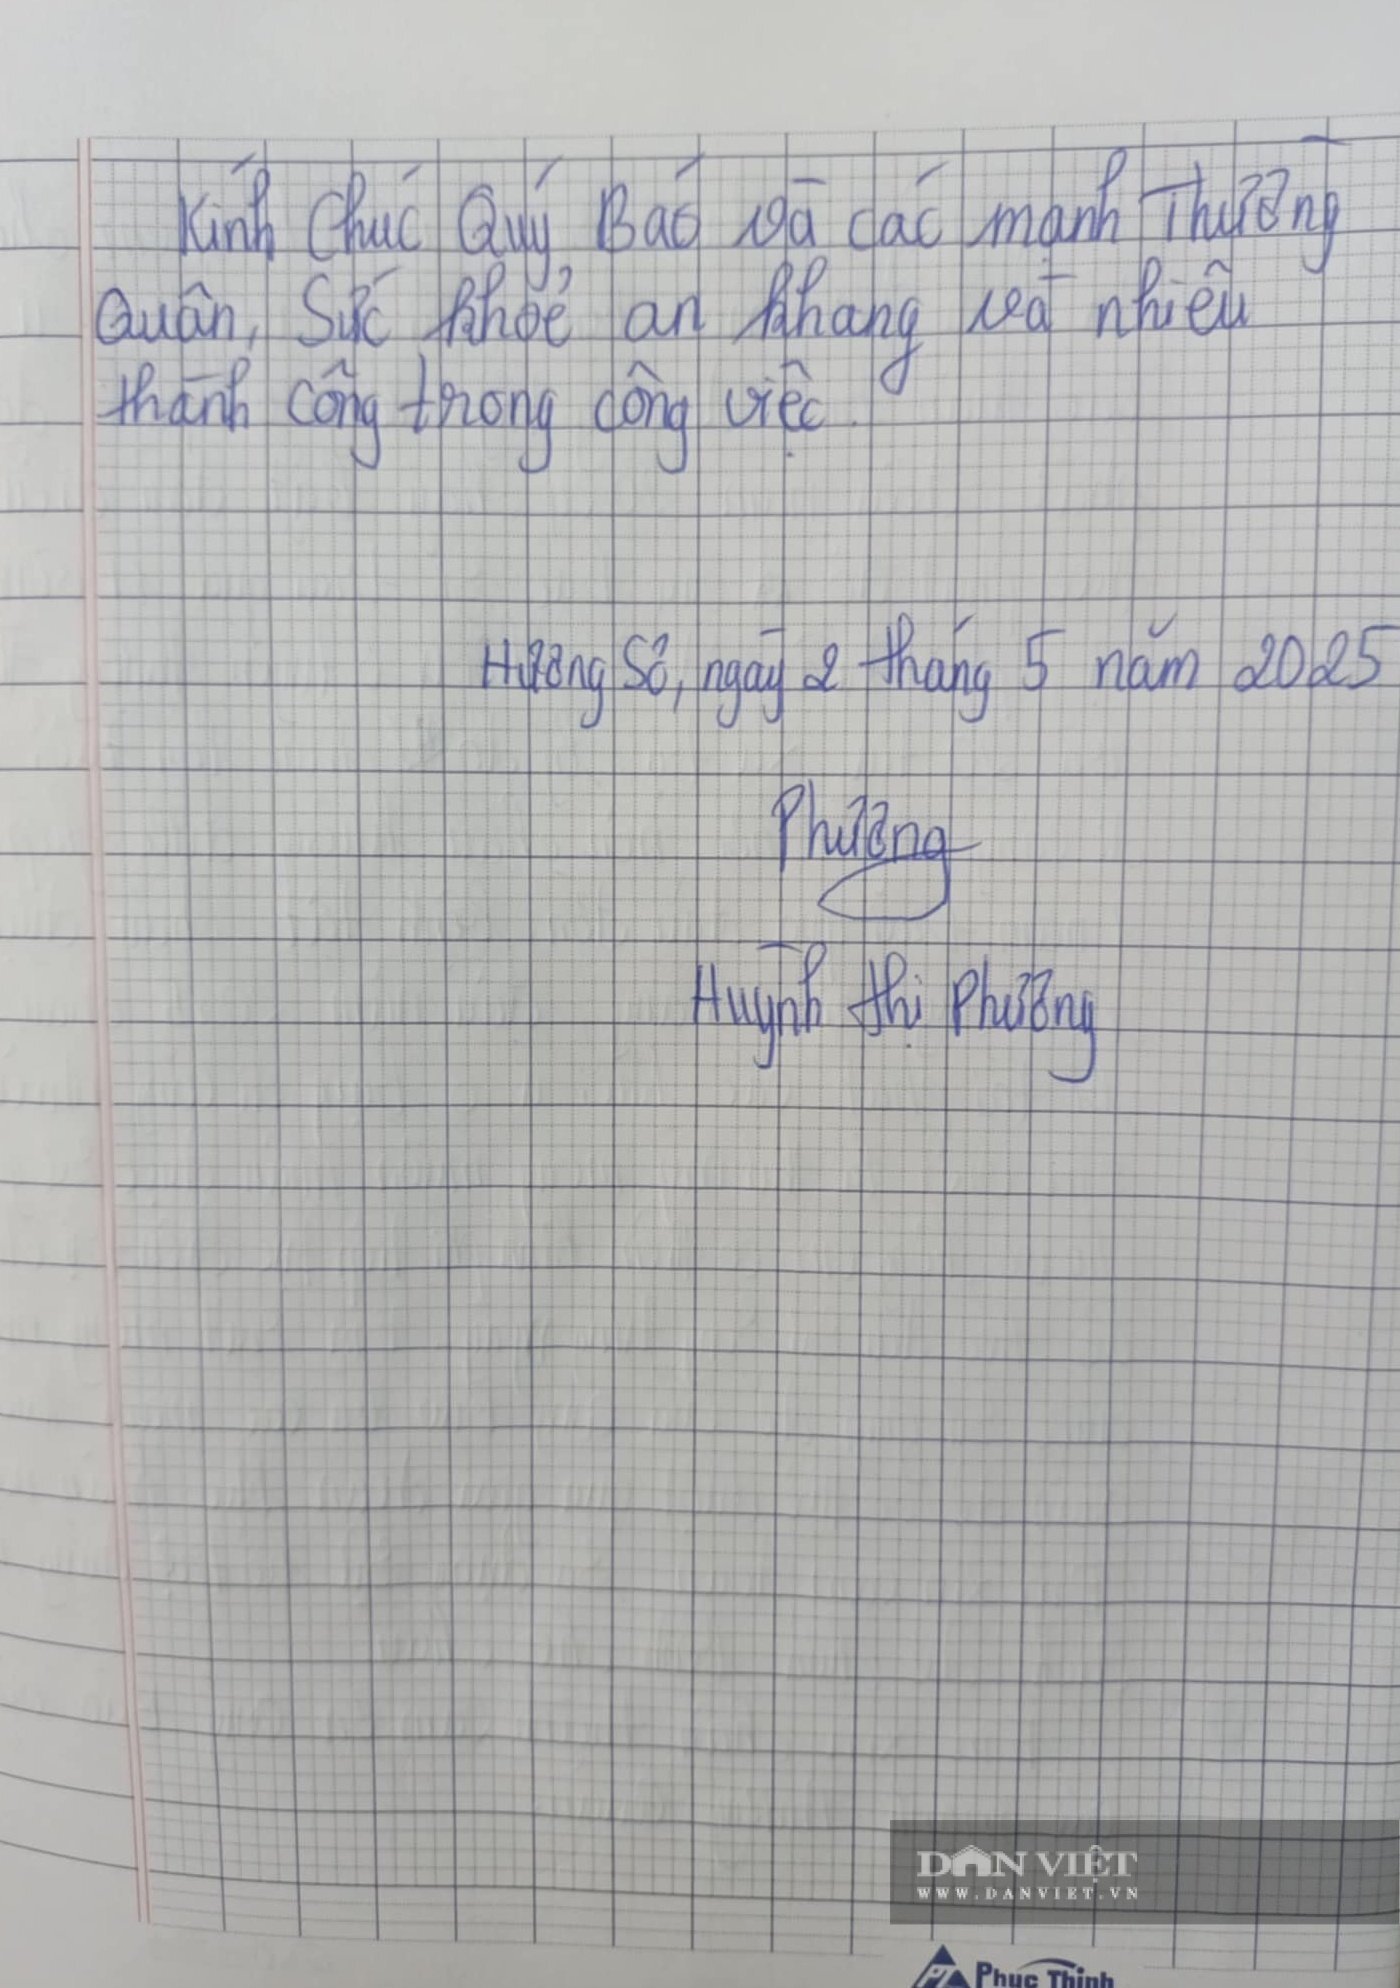 Kính Chúc Quý Báo và các mạnh Thường
Quân, Sức khỏe an khang và nhiều
thành công trong công việc.
Hương Sơ, ngày 2 tháng 5 năm 2025
Phương
Huỳnh Thị Phương
DÂN VIỆT
WWW.DANVIET.VN
Phuc Thinh